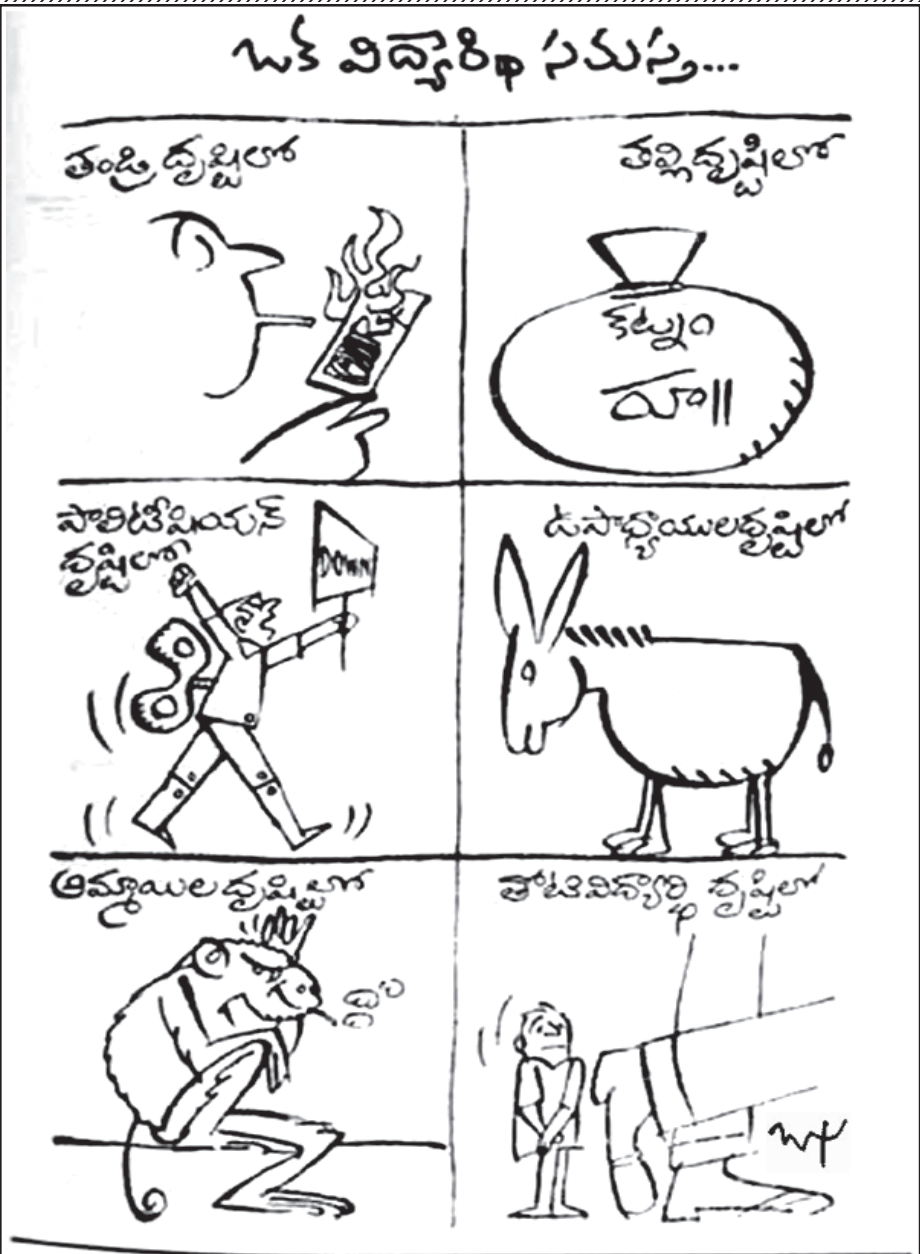 ఒక విద్యార్థి సమస్య...
తండ్రి దృష్టిలో
తల్లి దృష్టిలో
కట్నం
రూ||
పొలిటీషియన్
దృష్టిలో
DOWN
ఉపాధ్యాయుల దృష్టిలో
అమ్మాయిల దృష్టిలో
తోటి విద్యార్థి దృష్టిలో